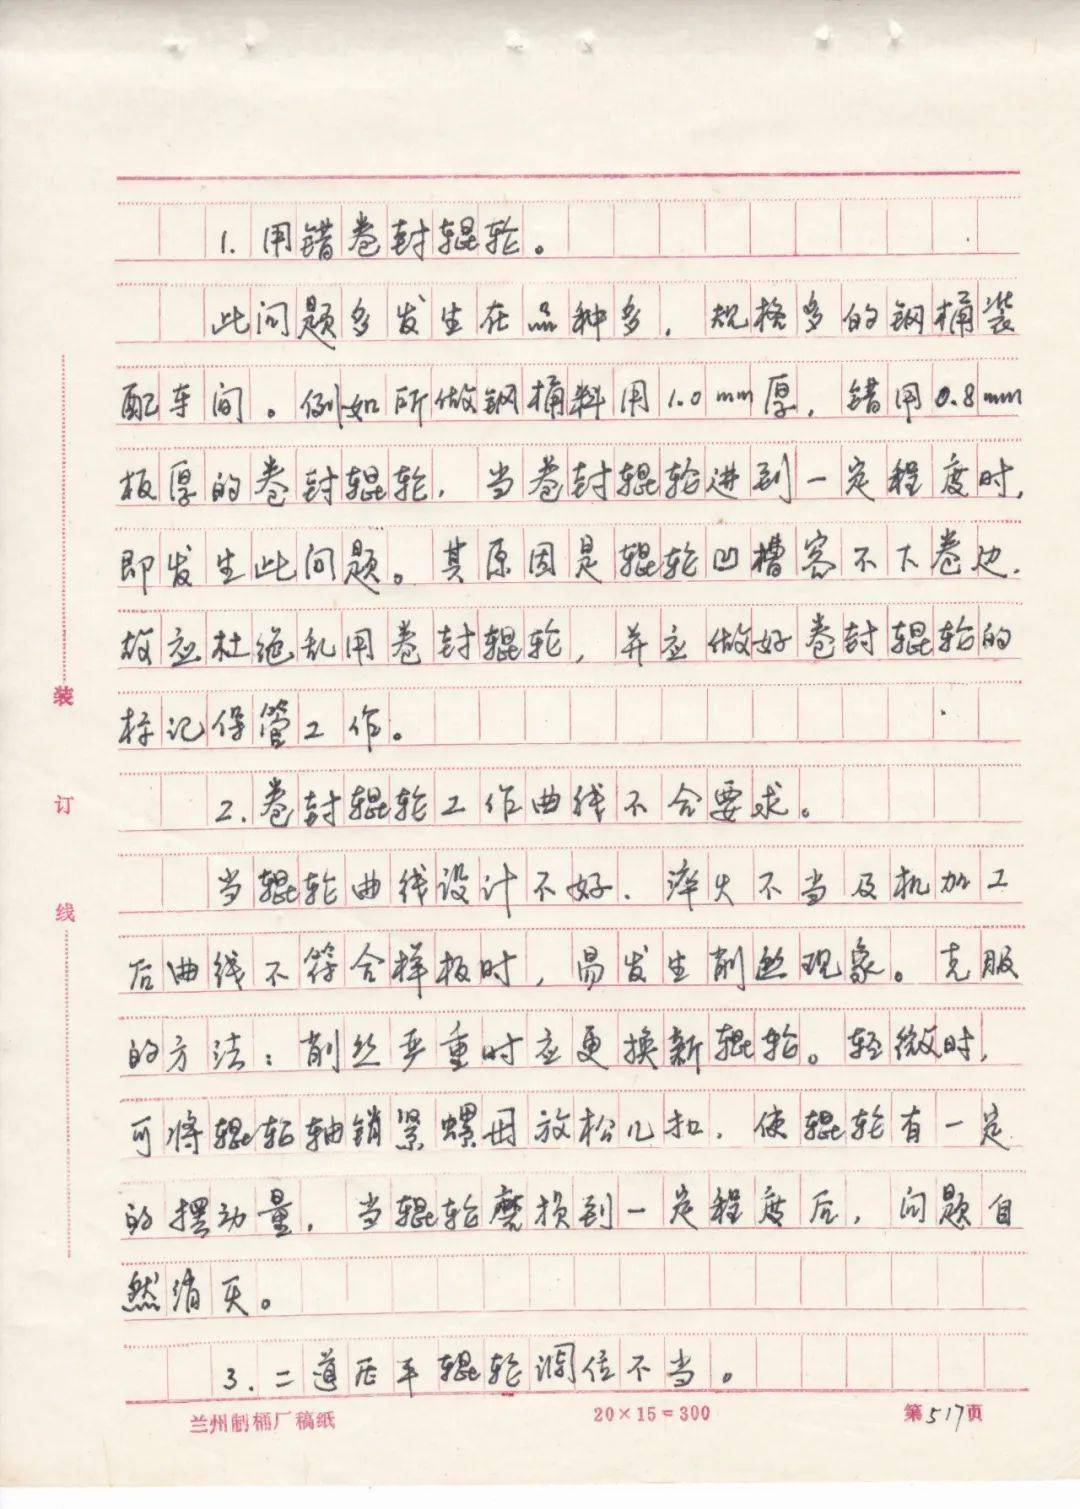 1. 用错卷封辊轮。
此问题多发生在品种多，规格多的钢桶装
配车间。例如所做钢桶料用1.0mm厚，错用0.8mm
板厚的卷封辊轮，当卷封辊轮进到一定程度时，
即发生此问题。其原因是辊轮凹槽容不下卷边.
故应杜绝乱用卷封辊轮，并应做好卷封辊轮的
标记保管工作。
2. 卷封辊轮工作曲线不合要求。
当辊轮曲线设计不好、淬火不当及机加工
后曲线不符合样板时，易发生削丝现象。克服
的方法：削丝严重时应更换新辊轮。轻微时，
可将辊轮轴销紧螺母放松几扣，使辊轮有一定
的摆动量，当辊轮磨损到一定程度后，问题自
然消灭。
3. 二道压平辊轮调位不当。
装
订
线
兰州制桶厂稿纸 20×15=300 第517页